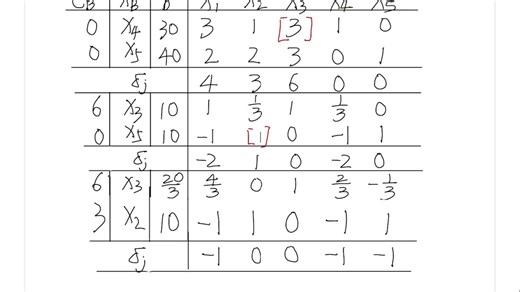 CB XB b X1 X2 X3 X4 X5
0 X4 30 3 1 [3] 1 0
0 X5 40 2 2 3 0 1
δj 4 3 6 0 0
6 X3 10 1 1/3 1 1/3 0
0 X5 10 -1 [1] 0 -1 1
δj -2 1 0 -2 0
6 X3 20/3 4/3 0 1 2/3 -1/3
3 X2 10 -1 1 0 -1 1
δj -1 0 0 -1 -1